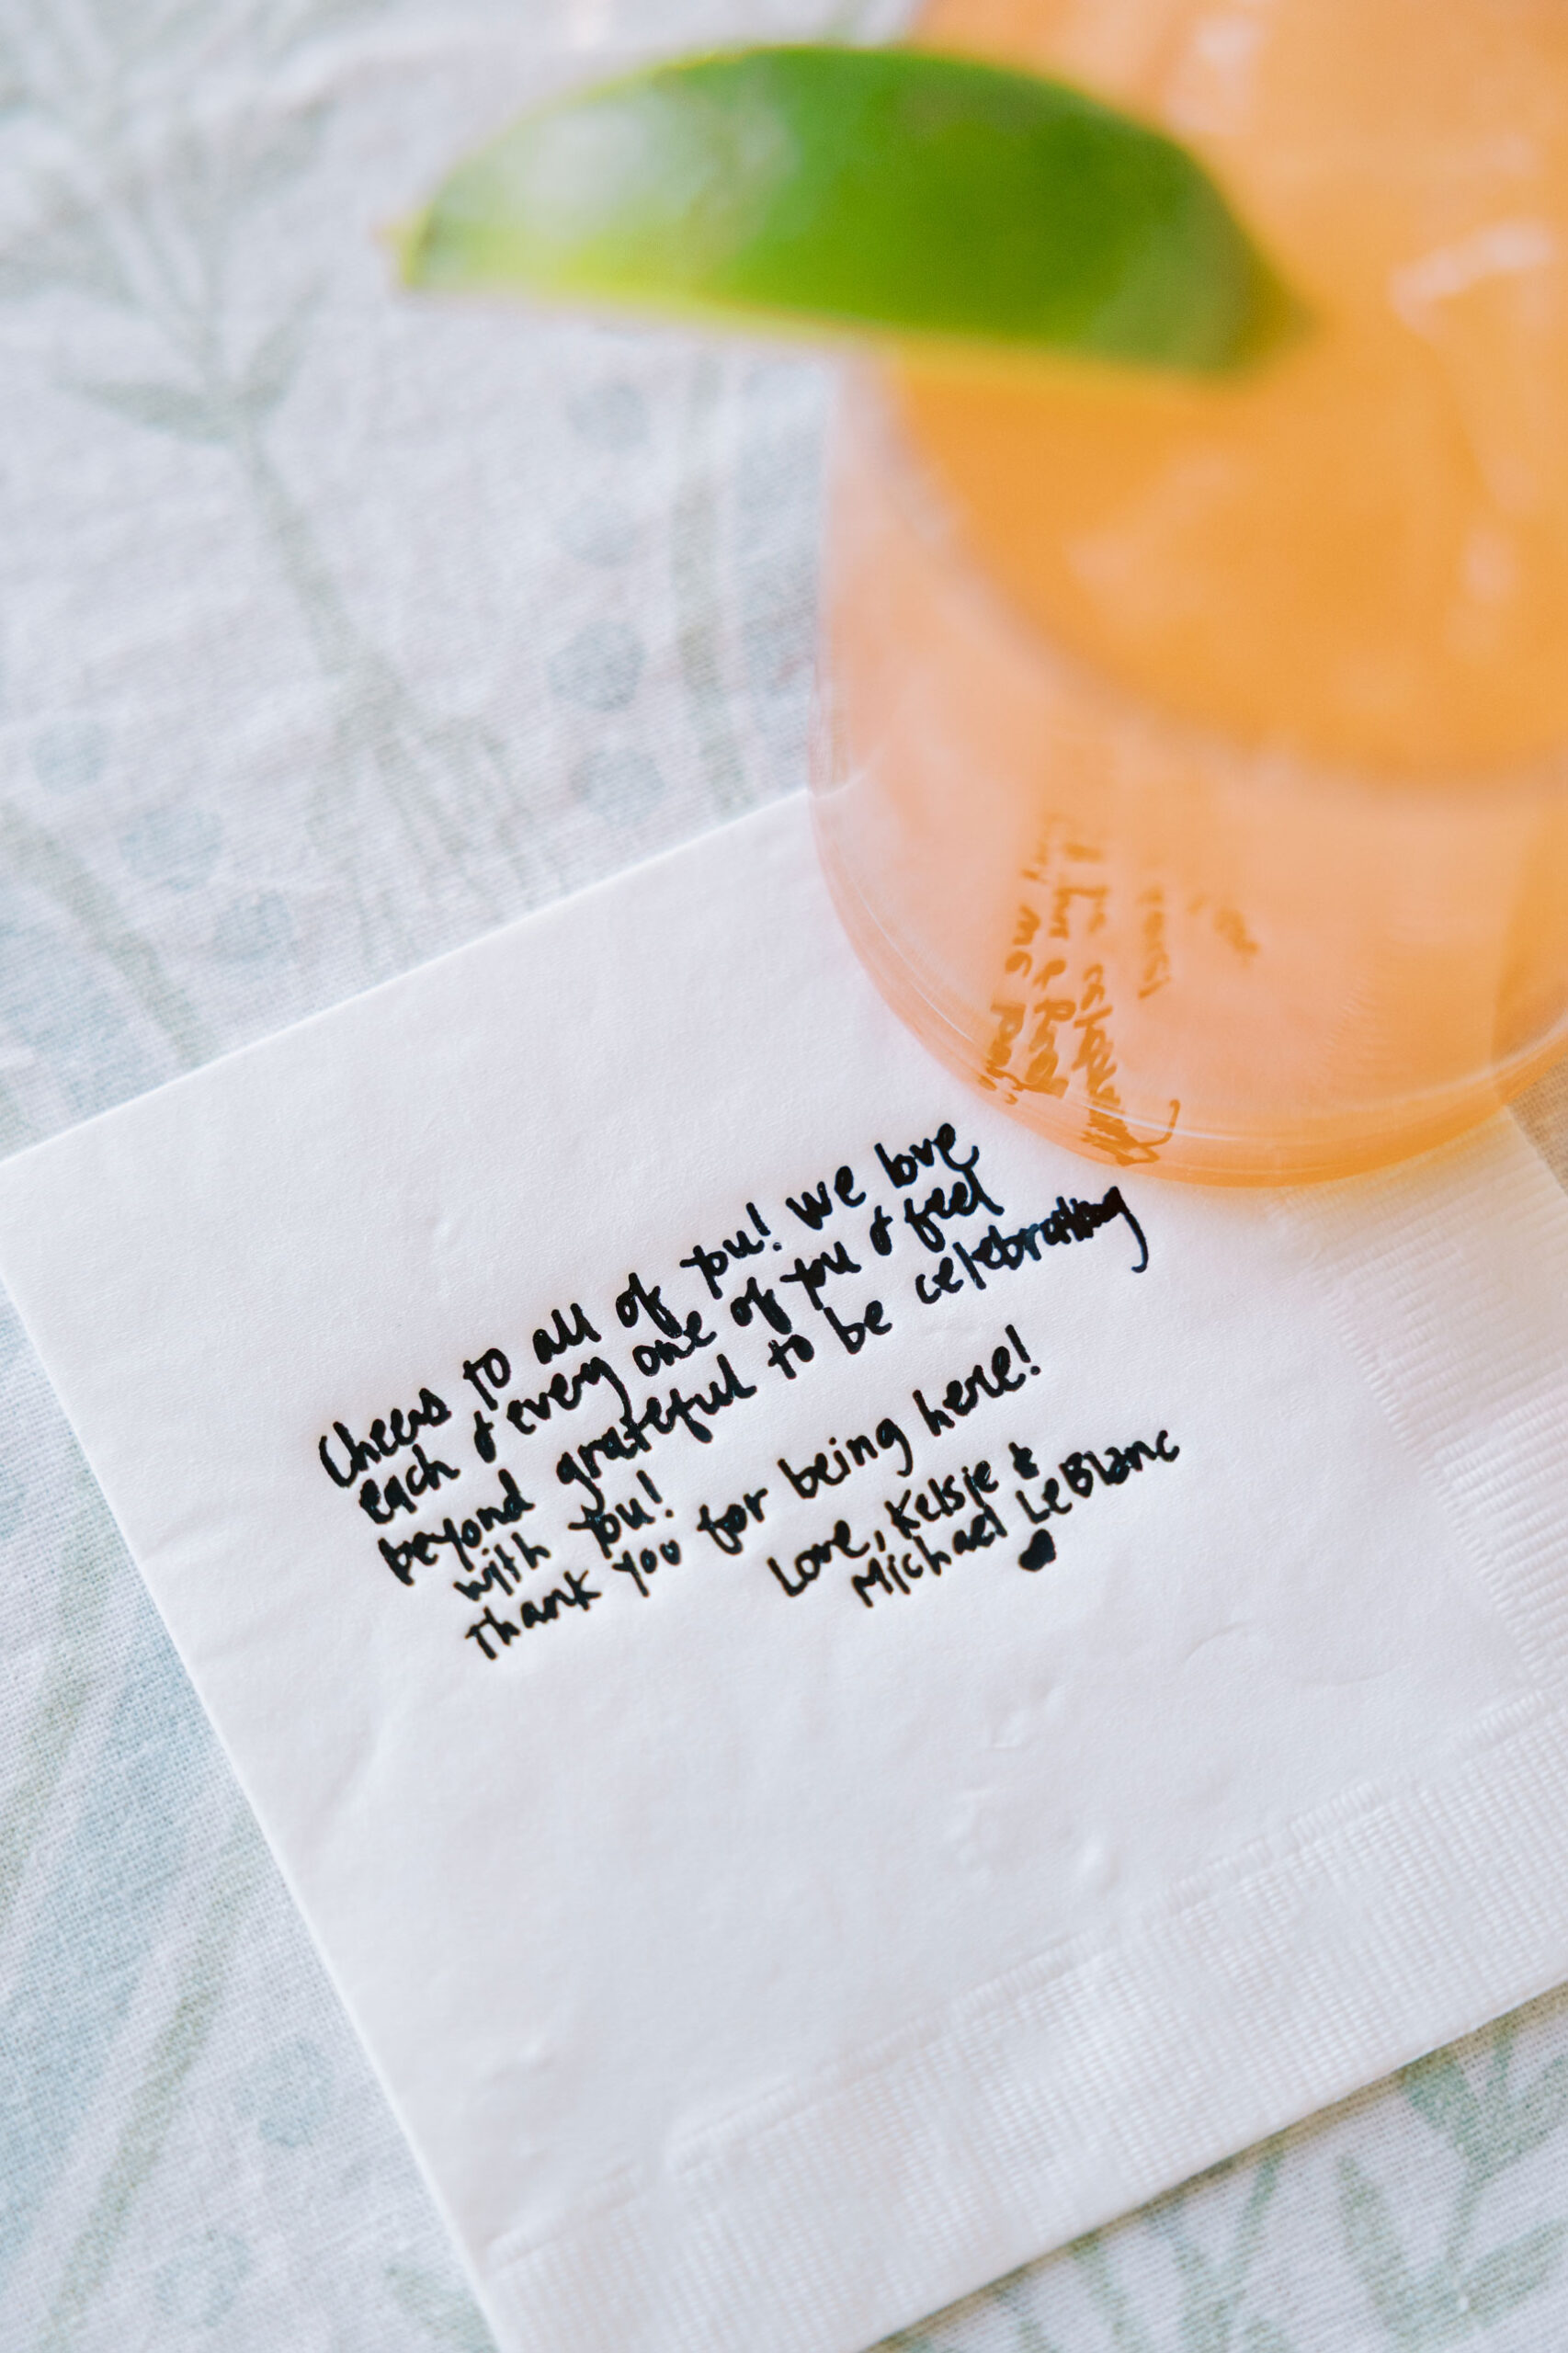 Cheers to all of you! We love
each & every one of you & feel
beyond grateful to be celebrating
with you!
Thank you for being here!
Love, Kelsie &
Michael LeBlanc